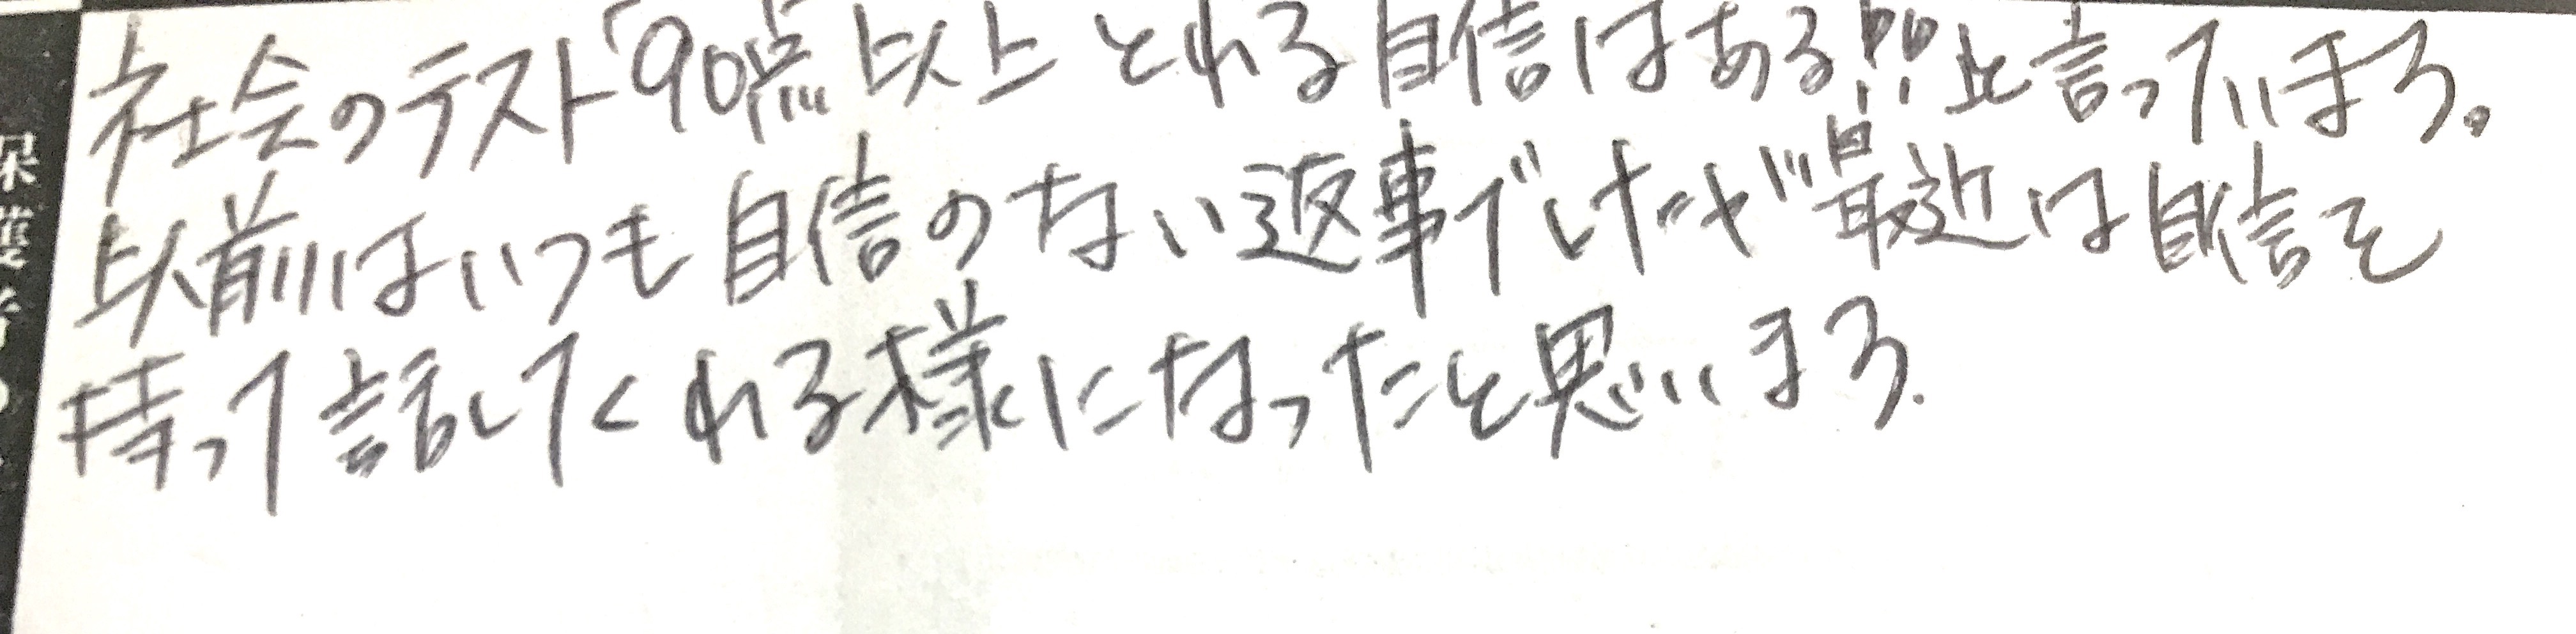 社会のテスト「90点以上とれる自信はある!!」と言っています。
以前はいつも自信のない返事でしたが最近は自信を
持って話してくれる様になったと思います.
保護者の